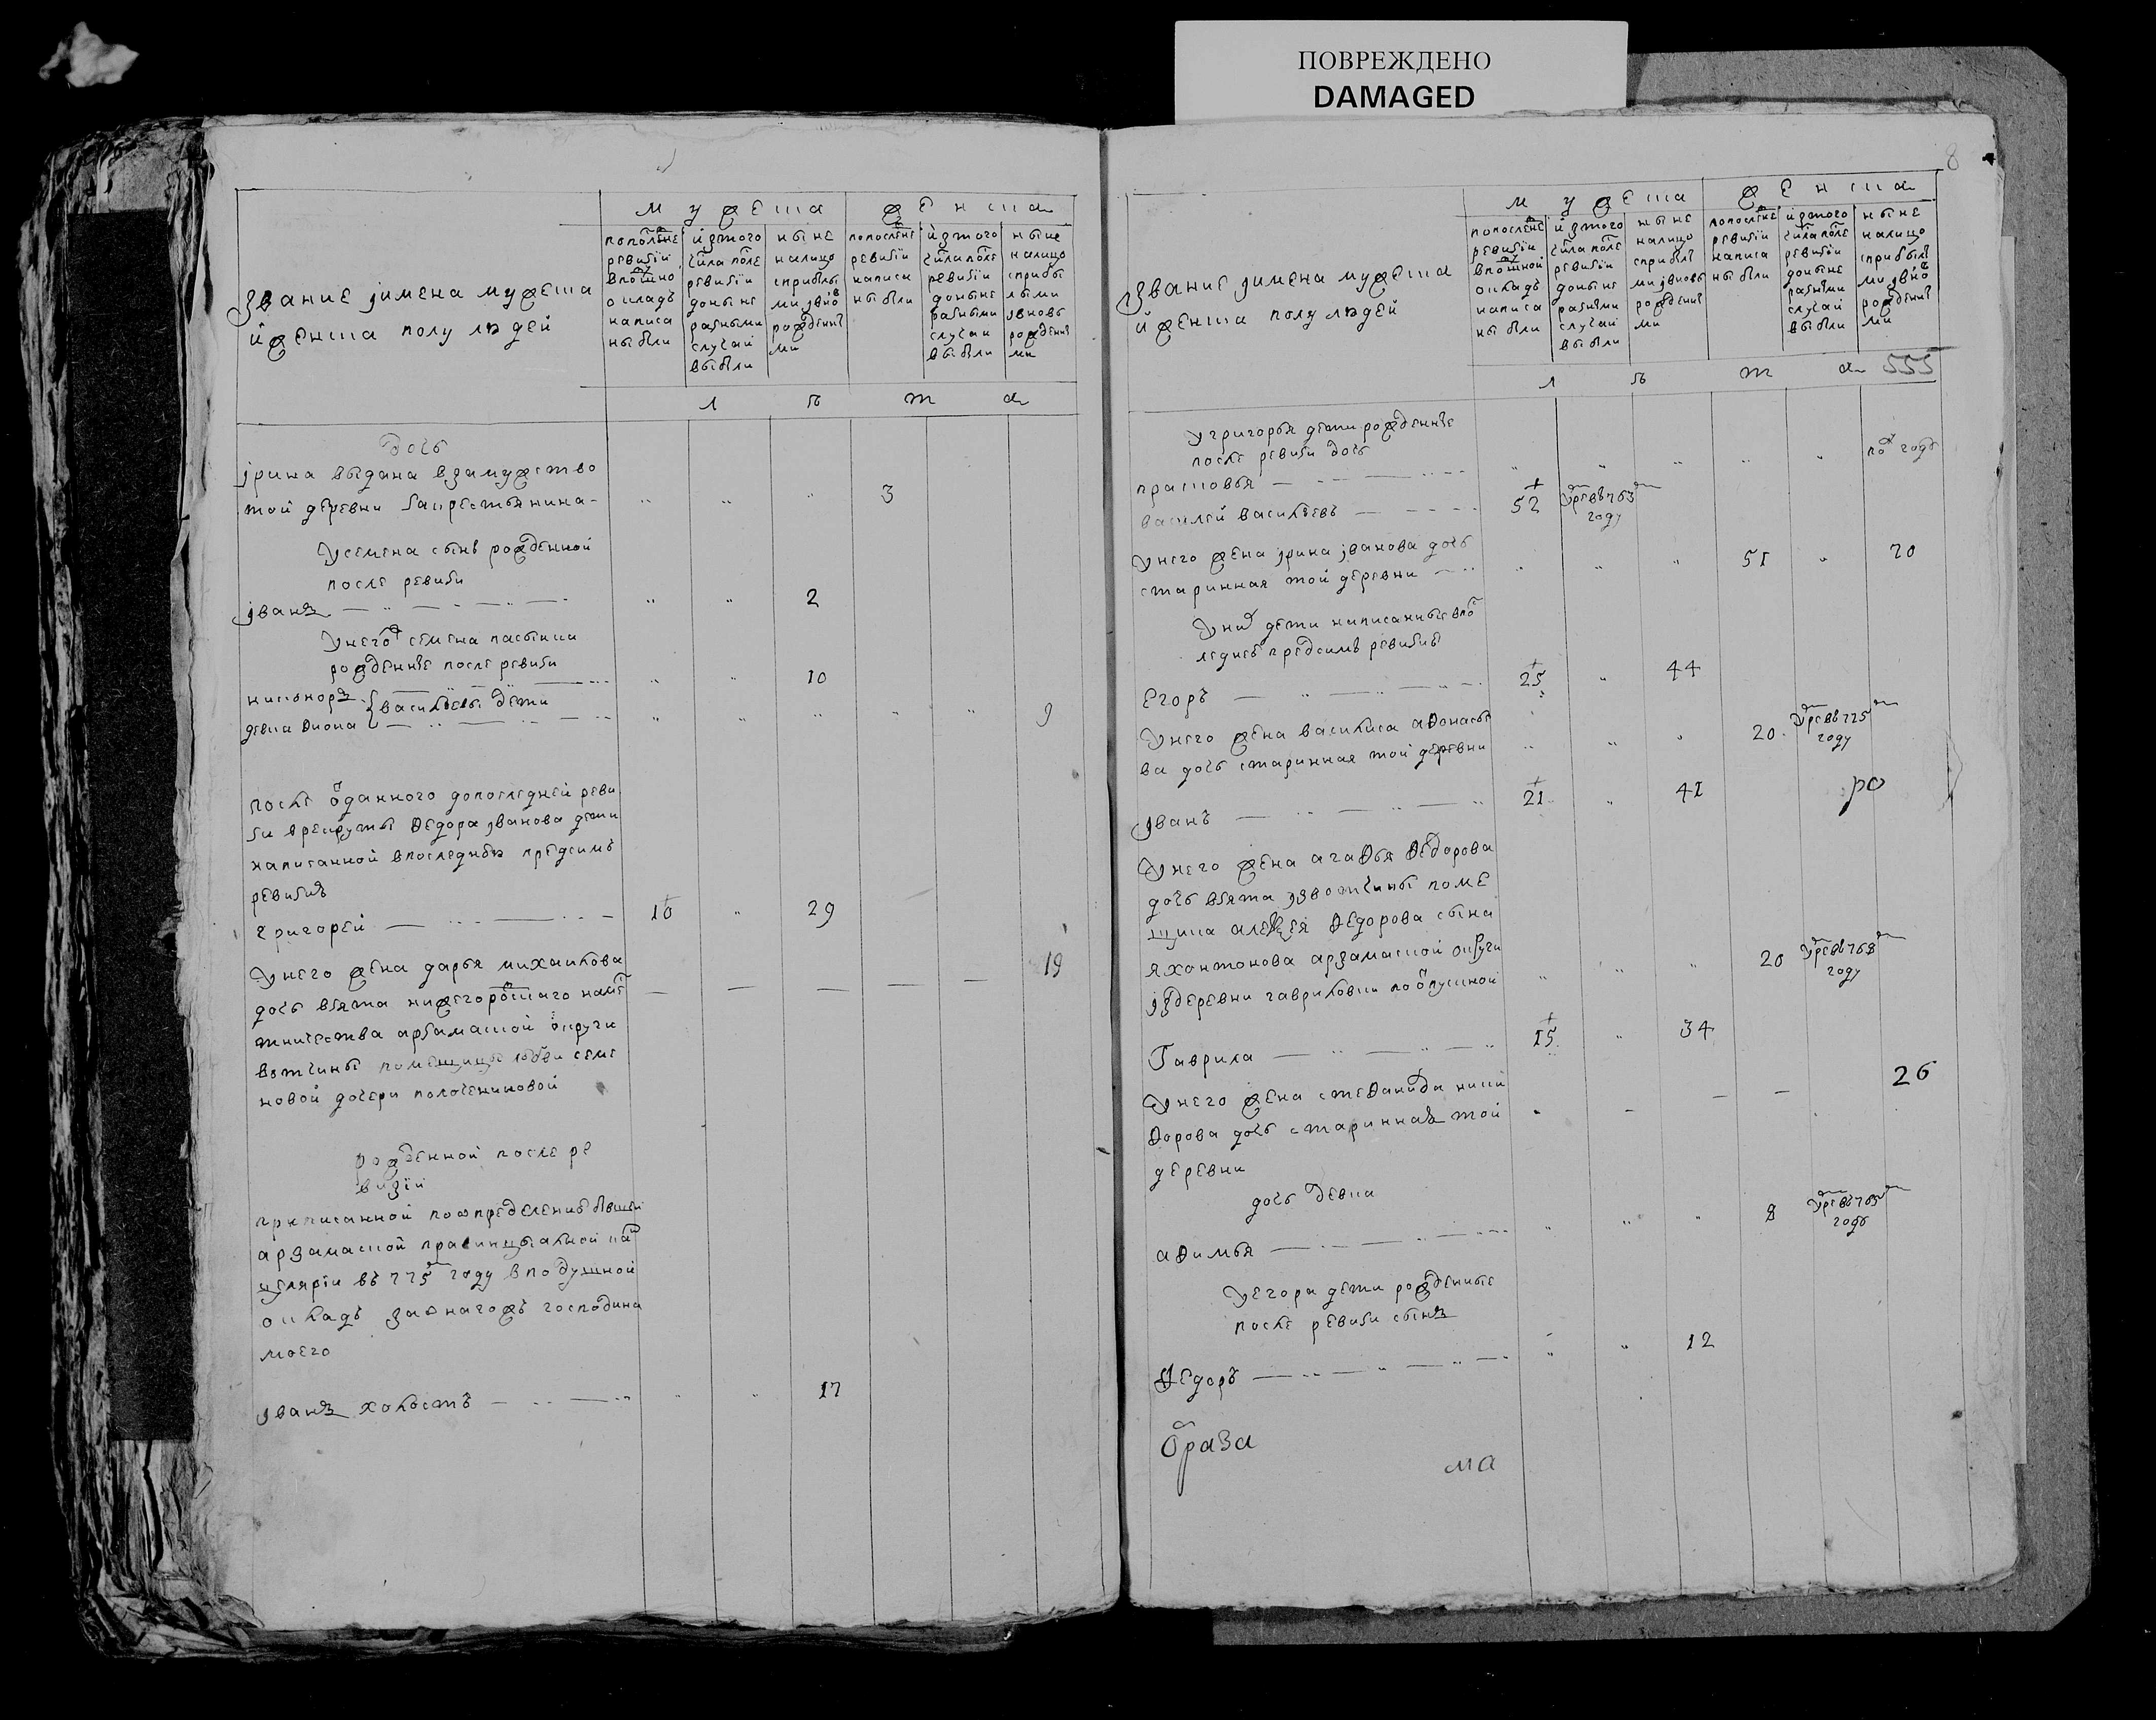 ПОВРЕЖДЕНО
DAMAGED
звание имена мужеска
и женска полу людей
мужеска
женска
пополѣдне
ревизии
в подушно
окладъ
написа
ны были
и зтого
числа после
ревизии
доныне
разными
случаи
выбыли
ныне
налицо
сприбылы
ми
рожденны
ми
пополѣдне
ревизии
написа
ны были
и зтого
числа после
ревизии
доныне
разными
случаи
выбыли
ныне
налицо
сприбы
лыми
ивновь
рожденны
ми
лѣта
дочь
ирина выдана взамужество
той деревни за крестьянина 3
У семена сынъ рожденной
после ревизи
иванъ 2
У него семена пасынки
рожденные после ревизи
никаноръ 10
васильевы дети
девка фиона 9
после отданного до последней реви
зи в рекруты Федора иванова дети
написанной в последней предсимъ
ревизиъ
григорей 10 29
У него жена дарья михаилова 19
дочь взята нижегороцкаго наме
тничества арзамаской округи
вотчины помещицы любви семе
новой дочери полочениновой
рожденной после ре
визии
приписанной по определению бывшей
арзамаской правинцыальной кан
целярии въ 775 году в подушной
окладъ за онагожъ господина
моего
иванъ холостъ 17
8
звание имена мужеска
и женска полу людей
мужеска
женска
пополѣдне
ревизии
в подушной
окладъ
написа
ны были
и зтого
числа после
ревизии
доныне
разными
случаи
выбыли
ныне
налицо
сприбылы
ми ивновь
рожденны
ми
пополѣдне
ревизии
написа
ны были
и зтого
числа после
ревизии
доныне
разными
случаи
выбыли
ныне
налицо
сприбылы
рожденны
ми
лѣта 555
У григорья дети рожденные
после ревизи дочь
прасковья полгода
василей васильевъ 52 умре в 763 году
У него жена ирина иванова дочь
старинная той деревни 51 70
У них дети написанные в по
следней предсимъ ревизиы
Егоръ 25 44
У него жена василиса афонасье
ва дочь старинная той деревни 20 умре въ 775 году
иванъ 21 41 ро
У него жена агафья федорова
дочь взята из вотчины поме
щика алексея федорова сына
яхонтова арзамаской округи
из деревни гавриловки по отпускной 20 умре въ 768 году
Гаврила 15 34
У него жена стефанида ники
форова дочь старинная той 26
деревни
дочь девка
афимья 8 умре въ 765 годъ
У егора дети рожденные
после ревизи сынъ
Федоръ 12
Ограза
ма